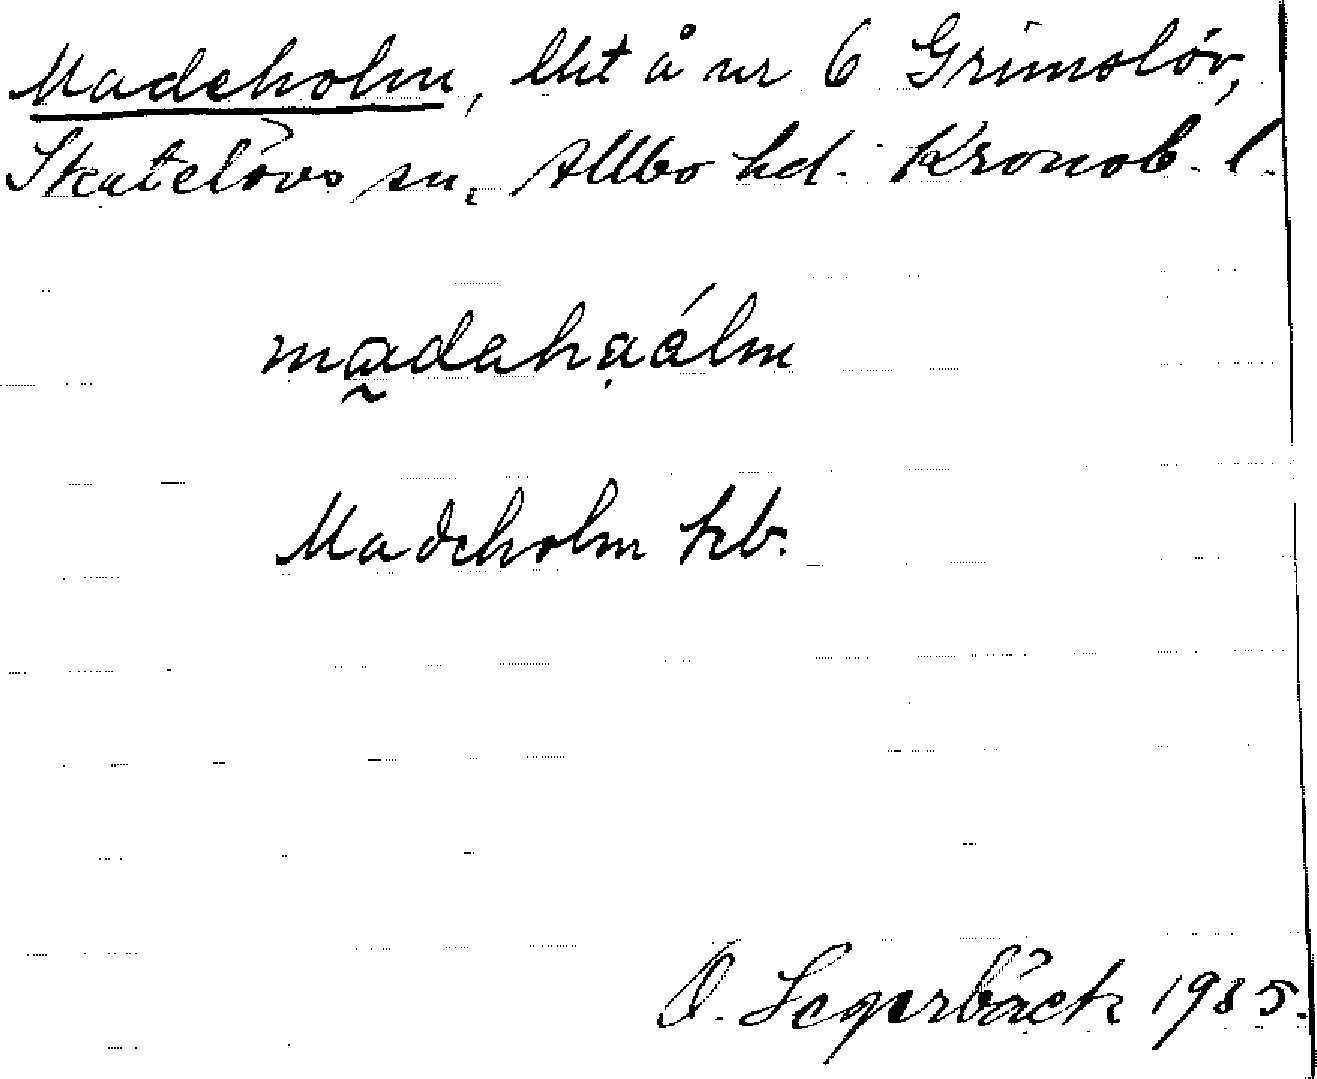 Madeholm, lht å nr 6 Grimslöv,
Skatelövs sn, Allbo hd. Kronob. l.
madahaálm
Madeholm kb.
O. Segerbäck 1935.